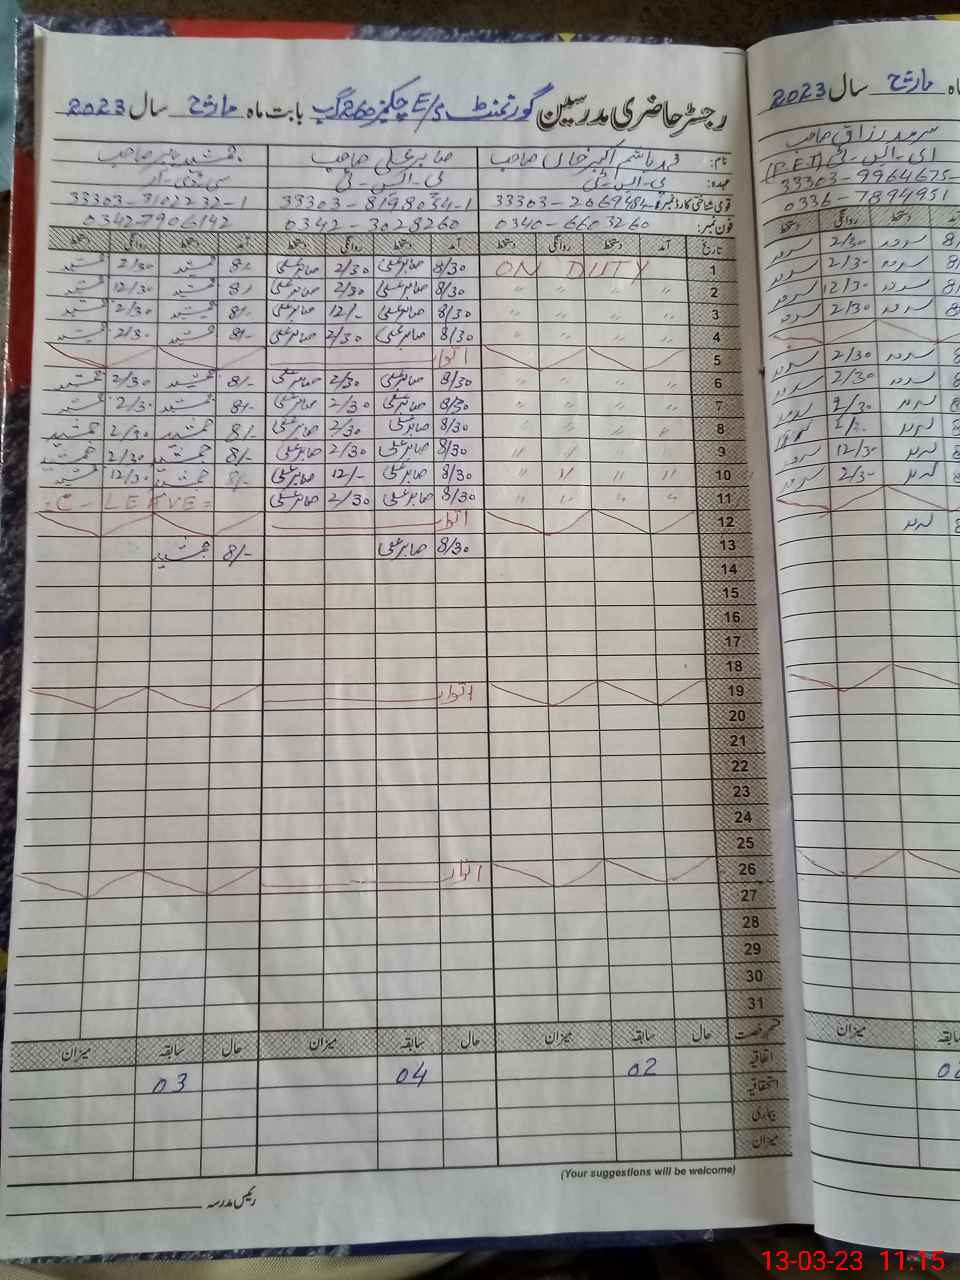 رجسٹر حاضری مدرسین گورنمنٹ E/S چک نمبر 260 گ ب بابت ماہ مارچ سال 2023
نام: محمد ہاشم اکبر خان صاحب صابر علی صاحب جمشید صاحب
عہدہ: ای-ایس-ٹی ای-ایس-ٹی سی-ٹی-آر
قومی شناختی کارڈ نمبر 33303-2069484- 33303-8198034-1 33303-3102232-1
فون نمبر: 0340-6603260 0342-3028260 0342-7906142
تاریخ آمد دستخط روانگی دستخط آمد دستخط روانگی دستخط آمد دستخط روانگی دستخط
1 ON DUTY 8/30 صابر علی 2/30 صابر علی 8/- جمشید 2/30 جمشید
2 " " " " 8/30 صابر علی 2/30 صابر علی 8/- جمشید 12/30 جمشید
3 " " " " 8/30 صابر علی 12/- صابر علی 8/- جمشید 2/30 جمشید
4 " " " " 8/30 صابر علی 2/30 صابر علی 8/- جمشید 2/30 جمشید
5 اتوار
6 " " " " 8/30 صابر علی 2/30 صابر علی 8/- جمشید 2/30 جمشید
7 " " " " 8/30 صابر علی 2/30 صابر علی 8/- جمشید 2/30 جمشید
8 " " " " 8/30 صابر علی 2/30 صابر علی 8/- جمشید 2/30 جمشید
9 " " " " 8/30 صابر علی 2/30 صابر علی 8/- جمشید 2/30 جمشید
10 " " " " 8/30 صابر علی 12/- صابر علی 8/- جمشید 12/30 جمشید
11 " " " " 8/30 صابر علی 2/30 صابر علی C-LEAVE
12 اتوار
13 8/30 صابر علی 8/- جمشید
14
15
16
17
18
19 اتوار
20
21
22
23
24
25
26 اتوار
27
28
29
30
31
قسم رخصت حال سابقہ میزان حال سابقہ میزان حال سابقہ میزان
اتفاقیہ 02 04 03
استحقاقیہ
بیماری
میزان
(Your suggestions will be welcome)
رئیس مدرسہ
ماہ مارچ سال 2023
سرمد رزاق صاحب
ای-ایس-ٹی (P.E.I)
33303-9964675-
0336-7894951
دستخط روانگی دستخط
سرمد 2/30 سرمد 8/
سرمد 2/30 سرمد 8/
سرمد 12/30 سرمد 8/
سرمد 2/30 سرمد 8/
سرمد 2/30 سرمد 8/
سرمد 2/30 سرمد 8/
سرمد 2/30 سرمد 8/
سرمد
سرمد 12/30 سرمد 8/
سرمد 2/30 سرمد 8/
سرمد 8/
میزان سابقہ
02
13-03-23 11:15